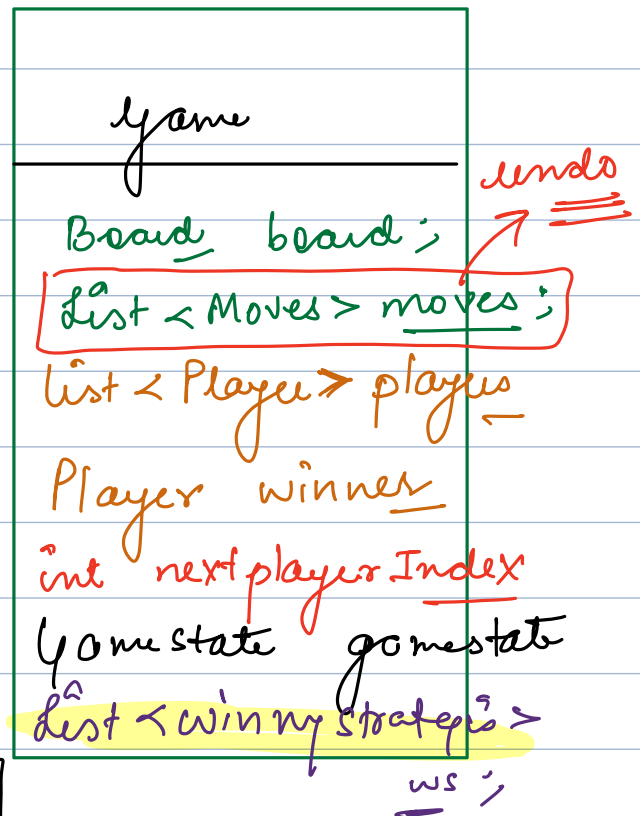 Game
undo
Board board;
List <Moves> moves;
List <Player> players
Player winner
int nextplayerIndex
Gamestate gamestate
List <winnystrategis>
ws;